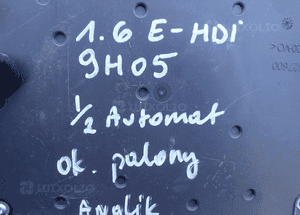 1.6 E-HDi
9H05
1/2 Automat
ok. palony
Anglik
LUXOLIO